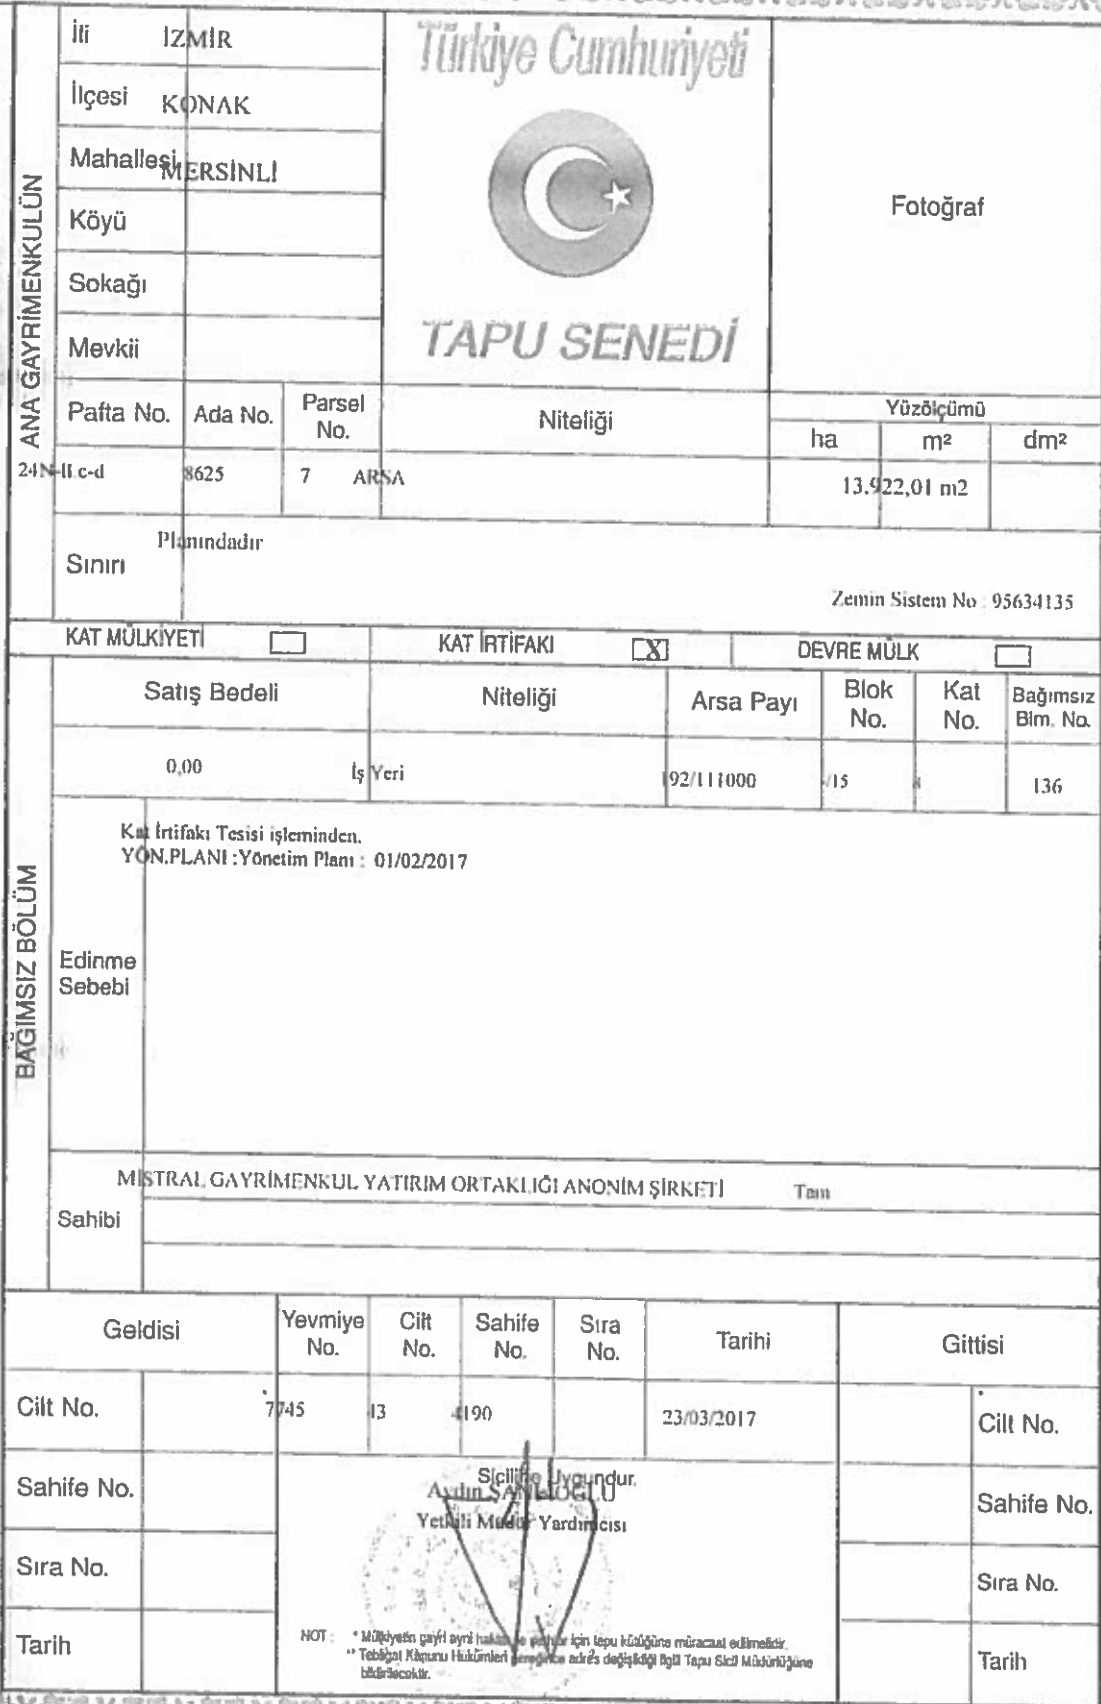 İli İZMİR
İlçesi KONAK
Mahallesi MERSİNLİ
Köyü
Sokağı
Mevkii
ANA GAYRİMENKULÜN
Türkiye Cumhuriyeti
TAPU SENEDİ
Fotoğraf
Pafta No. Ada No. Parsel No. Niteliği Yüzölçümü
ha m² dm²
24N-II c-d 8625 7 ARSA 13.922,01 m2
Sınırı Planındadır
Zemin Sistem No : 95634135
KAT MÜLKİYETİ KAT İRTİFAKI X DEVRE MÜLK
BAĞIMSIZ BÖLÜM
Satış Bedeli Niteliği Arsa Payı Blok No. Kat No. Bağımsız Blm. No.
0,00 İş Yeri 192/111000 /15 136
Kat İrtifakı Tesisi işleminden.
YÖN.PLANI :Yönetim Planı : 01/02/2017
Edinme
Sebebi
MİSTRAL GAYRİMENKUL YATIRIM ORTAKLIĞI ANONİM ŞİRKETİ Tam
Sahibi
Geldisi Yevmiye No. Cilt No. Sahife No. Sıra No. Tarihi Gittisi
Cilt No. 7745 43 4190 23/03/2017 Cilt No.
Siciline Uygundur.
Aydın
Yetkili Müdür Yardımcısı
Sahife No. Sahife No.
Sıra No. Sıra No.
Tarih Tarih
NOT : * Mülkiyetin gayri ayni haklar için tapu kütüğüne müracaat edilmelidir.
** Tebligat Kanunu Hükümleri gereğince adres değişikliği ilgili Tapu Sicil Müdürlüğüne
bildirilecektir.